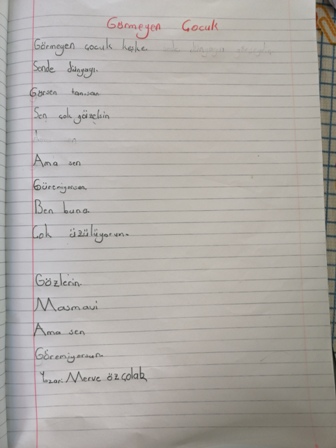 Görmeyen Çocuk
Görmeyen çocuk keşke
Sende dünyayı
Görsen
Sen çok güzelsin
Ama sen
Göremiyorsun
Ben buna
Çok üzülüyorum.
Gözlerin
Masmavi
Ama sen
Göremiyorsun
Yazarı Merve özçolak